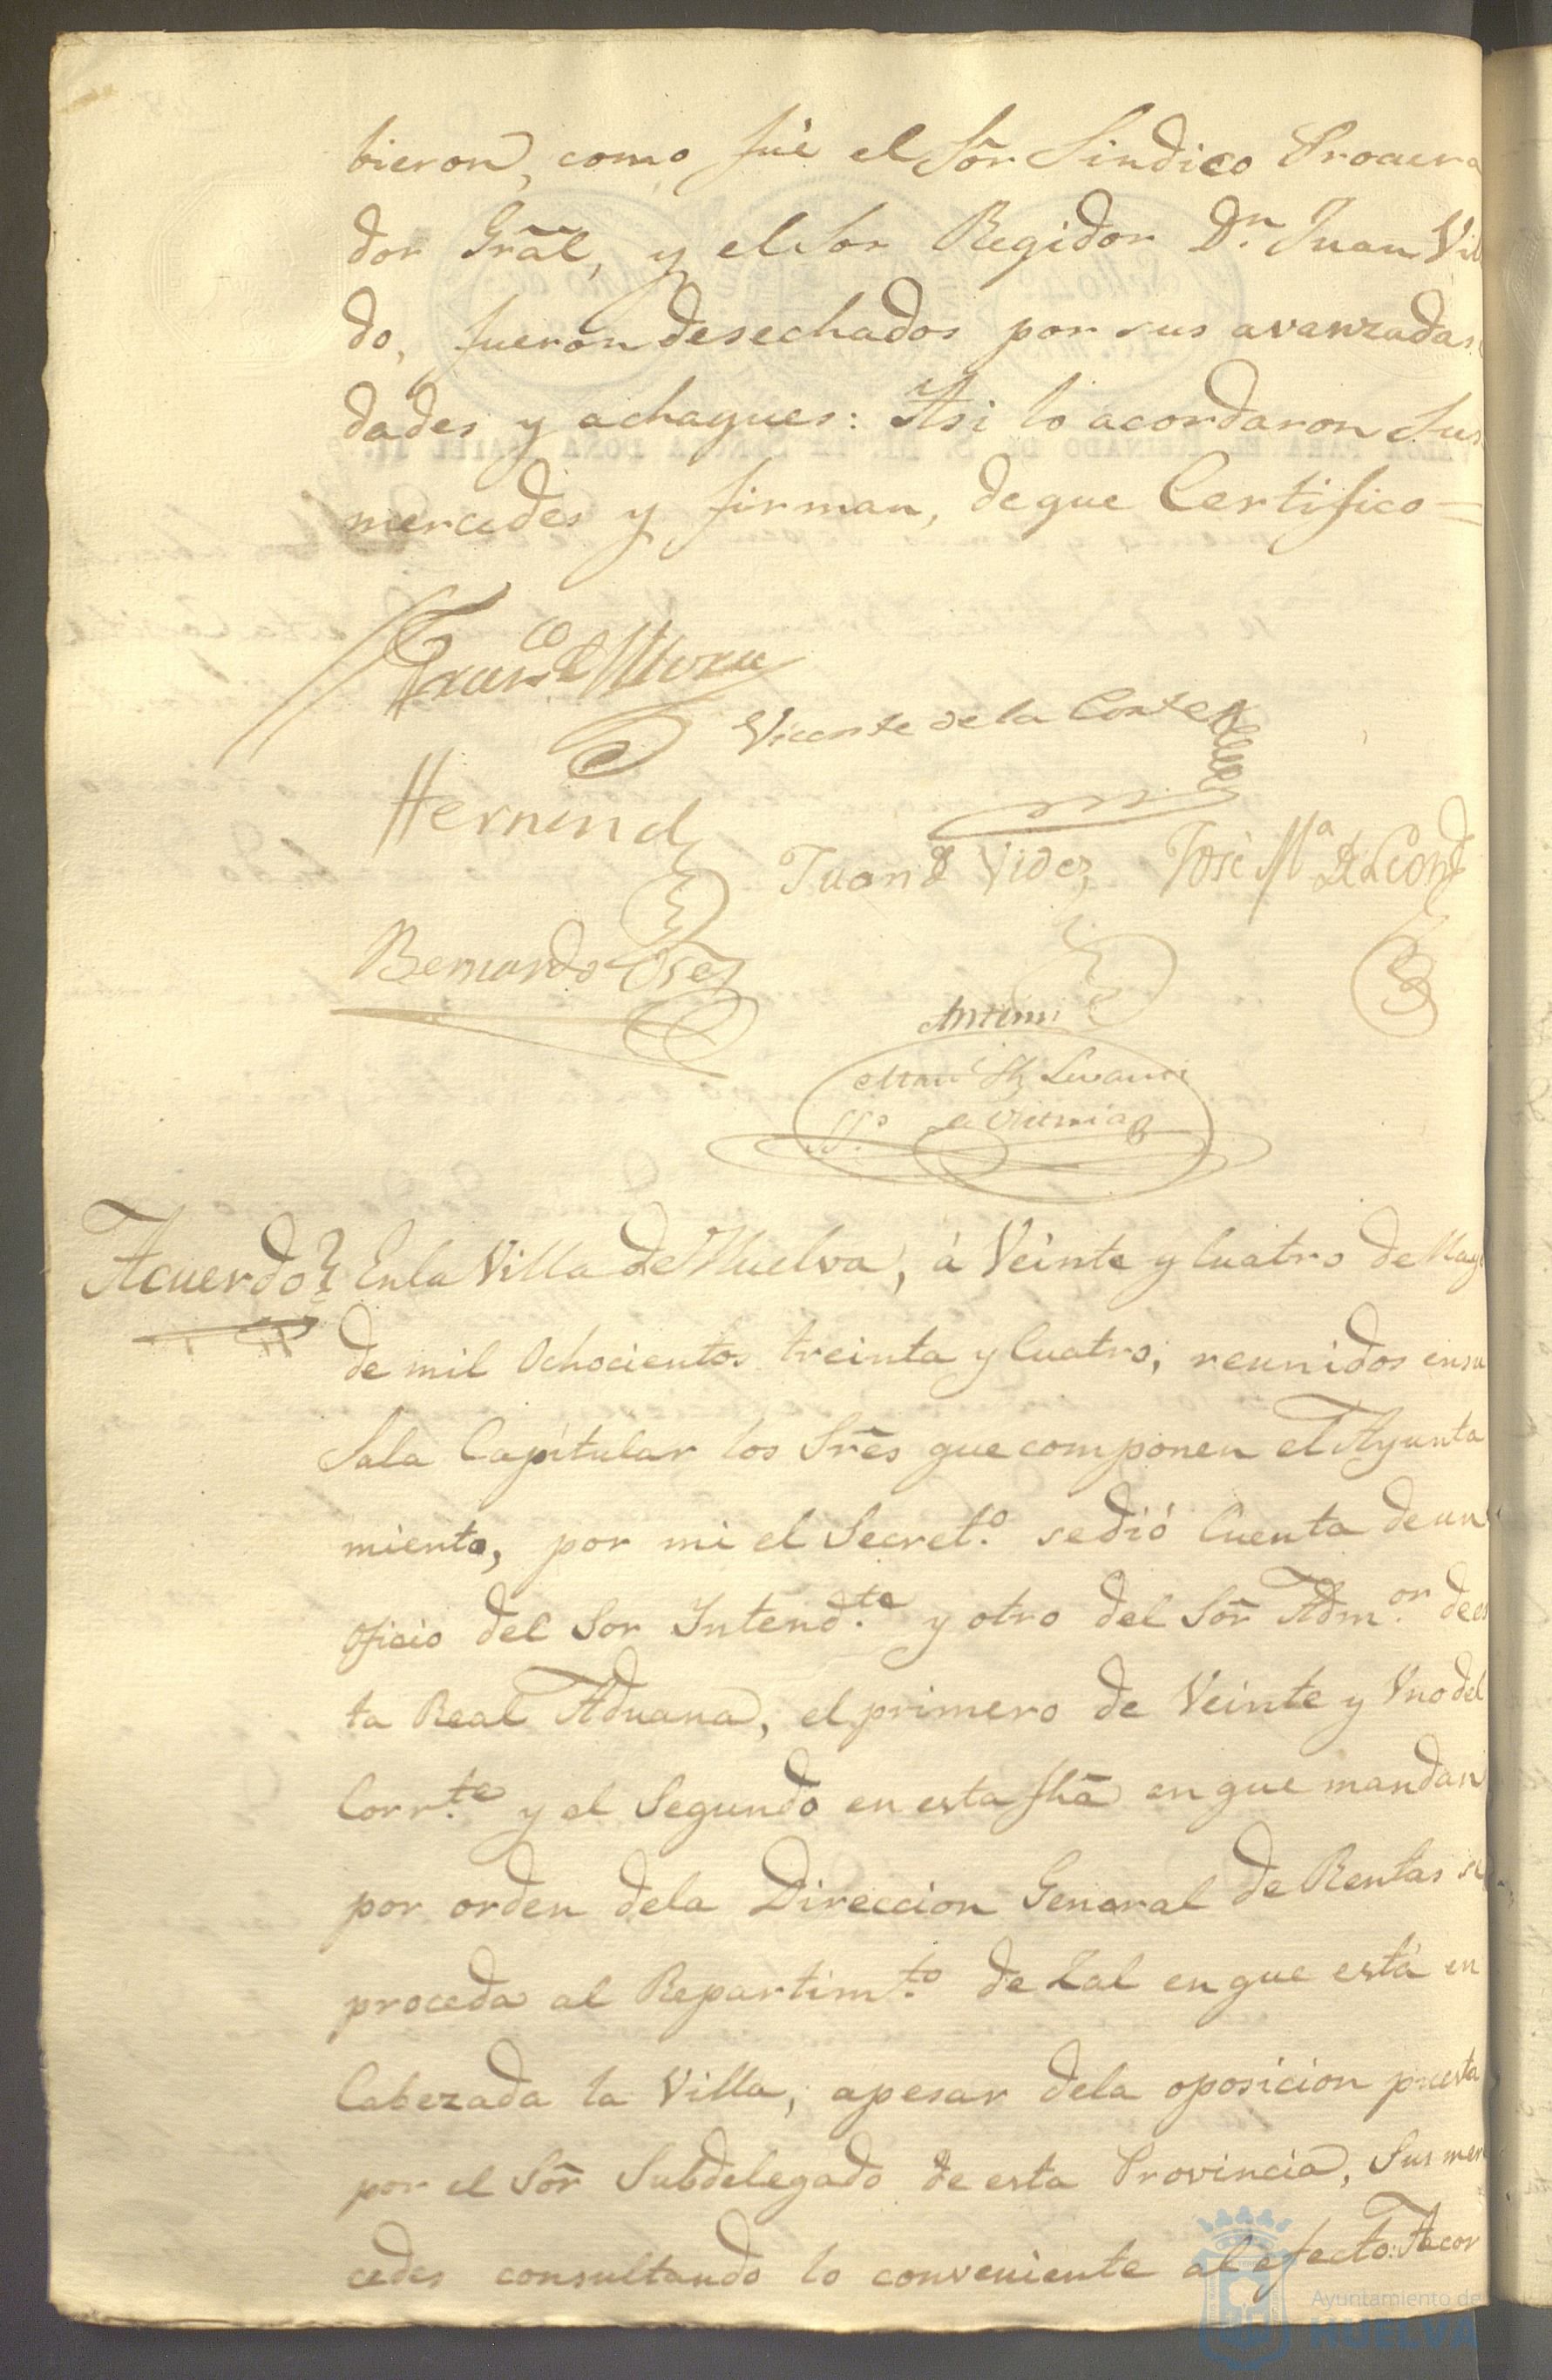 bieron, como fué el Sõr Sindico Procura
dor Grãl, y el Sor Regidor D.n Juan Vi
do, fueron desechados por sus avanzadas
dades y achaques: Asi lo acordaron Sus
mercedes y firman, deque Certifico=
Fran.co de Mora
Vicente de la Corte
Hernand
Juan de Videz José M.a de Leon
Bernardo
Antemi
SS.o
Acuerdo Enla Villa de Huelva, á Veinte y Cuatro de Mayo
de mil Ochocientos treinta y Cuatro, reunidos ensu
Sala Capitular los Srẽs que componen el Ayunta
miento, por mi el Secret.o sedió Cuenta de un
oficio del Sor Intend.te y otro del Sõr Adm.or de es
ta Real Aduana, el primero de Veinte y Uno del
Corr.te y el Segundo en esta fhã en que mandan
por orden dela Direccion General de Rentas se
proceda al Repartim.to de Zal en que está en
Cabezada la Villa, apesar dela oposicion puesta
por el Sõr Subdelegado de esta Provincia, Sus mer
cedes consultando lo conveniente al efecto: Acor
Ayuntamiento de
HUELVA